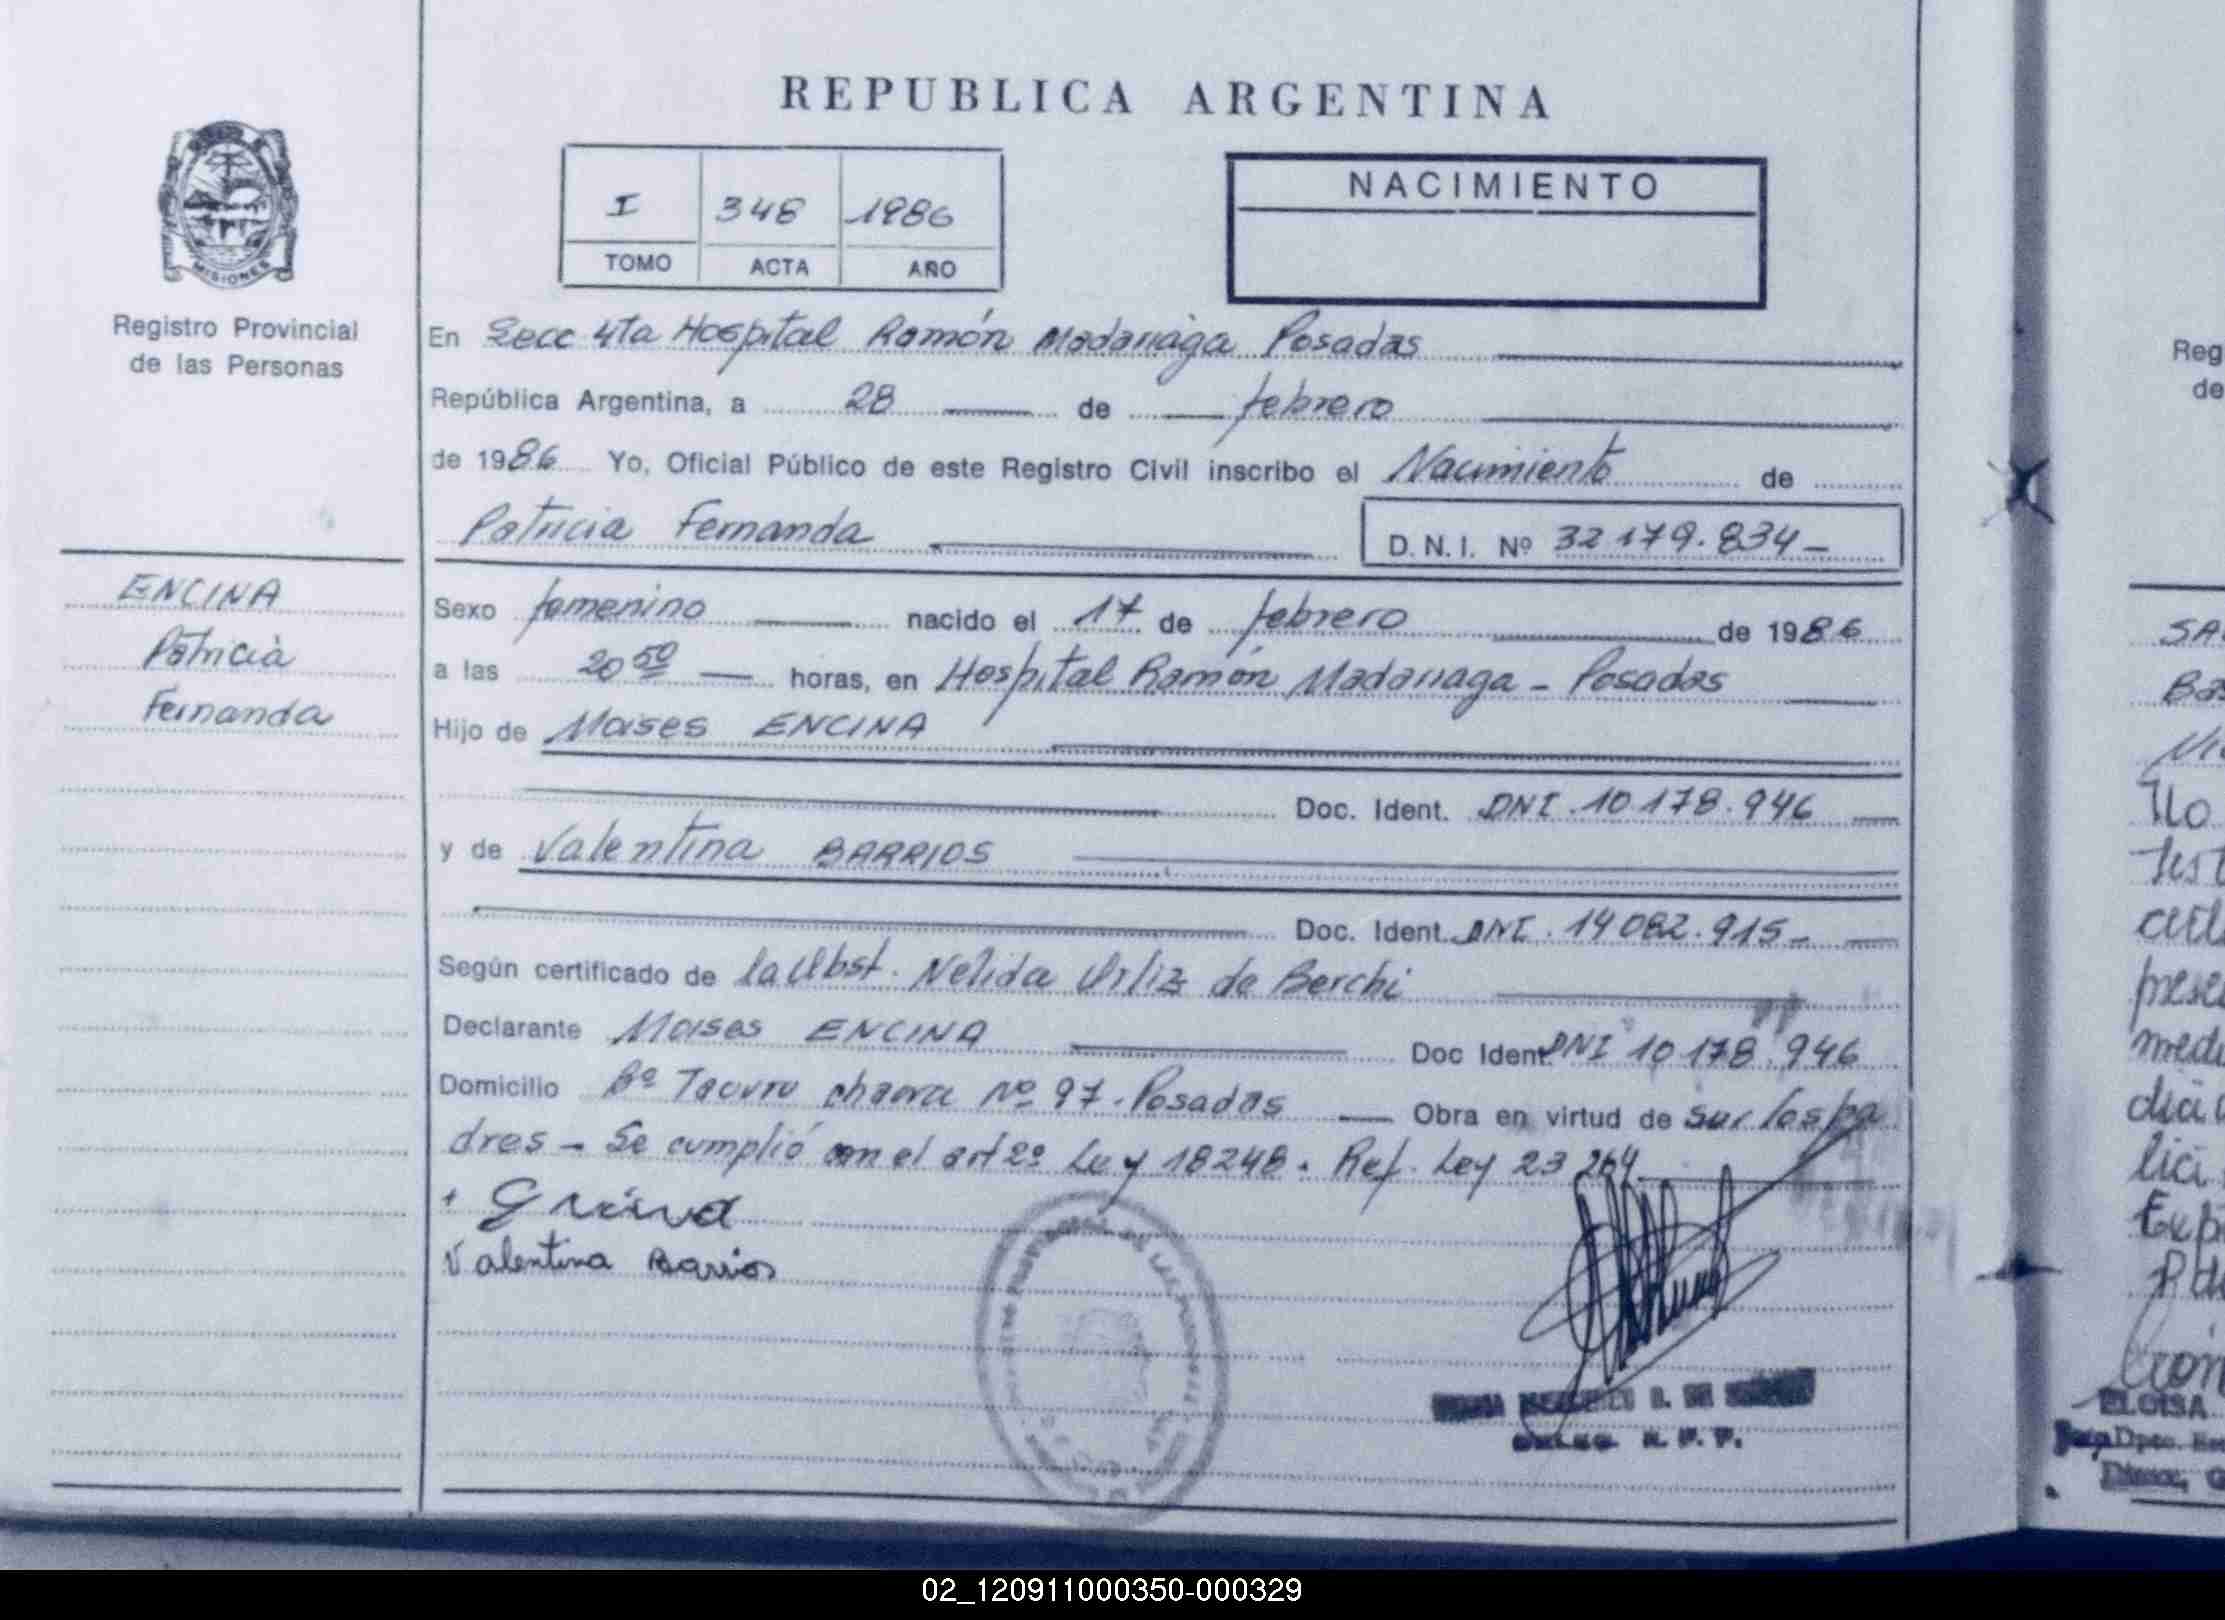 REPUBLICA ARGENTINA
MISIONES
Registro Provincial
de las Personas
I 348 1986
TOMO ACTA AÑO
NACIMIENTO
En Secc 4ta Hospital Ramón Madariaga Posadas
República Argentina, a 28 de febrero
de 1986 Yo, Oficial Público de este Registro Civil inscribo el Nacimiento de
Patricia Fernanda D.N.I. Nº 32 179.834-
ENCINA
Patricia
Fernanda
Sexo femenino nacido el 17 de febrero de 1986
a las 20 50 horas, en Hospital Ramón Madariaga - Posadas
Hijo de Moises ENCINA
Doc. Ident. DNI.10 178.946
y de Valentina BARRIOS
Doc. Ident. DNI.14 082.915-
Según certificado de la Obst. Nelida Ortiz de Berchi
Declarante Moises ENCINA Doc Ident DNI 10 178.946
Domicilio Bº chacra Nº 97. Posadas Obra en virtud de ser los pa
dres - Se cumplió con el art 2º Ley 18248. Ref. Ley 23 264
Valentina Barrios
R. P. P.
Reg
de
ELOISA
Dpto.
02_120911000350-000329